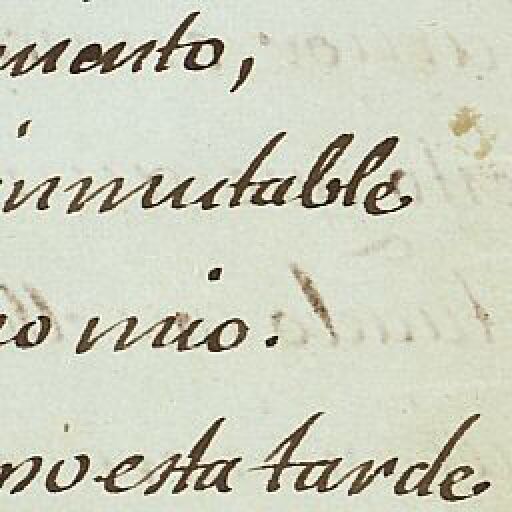 mento,
inmutable
o mio.
no esta tarde